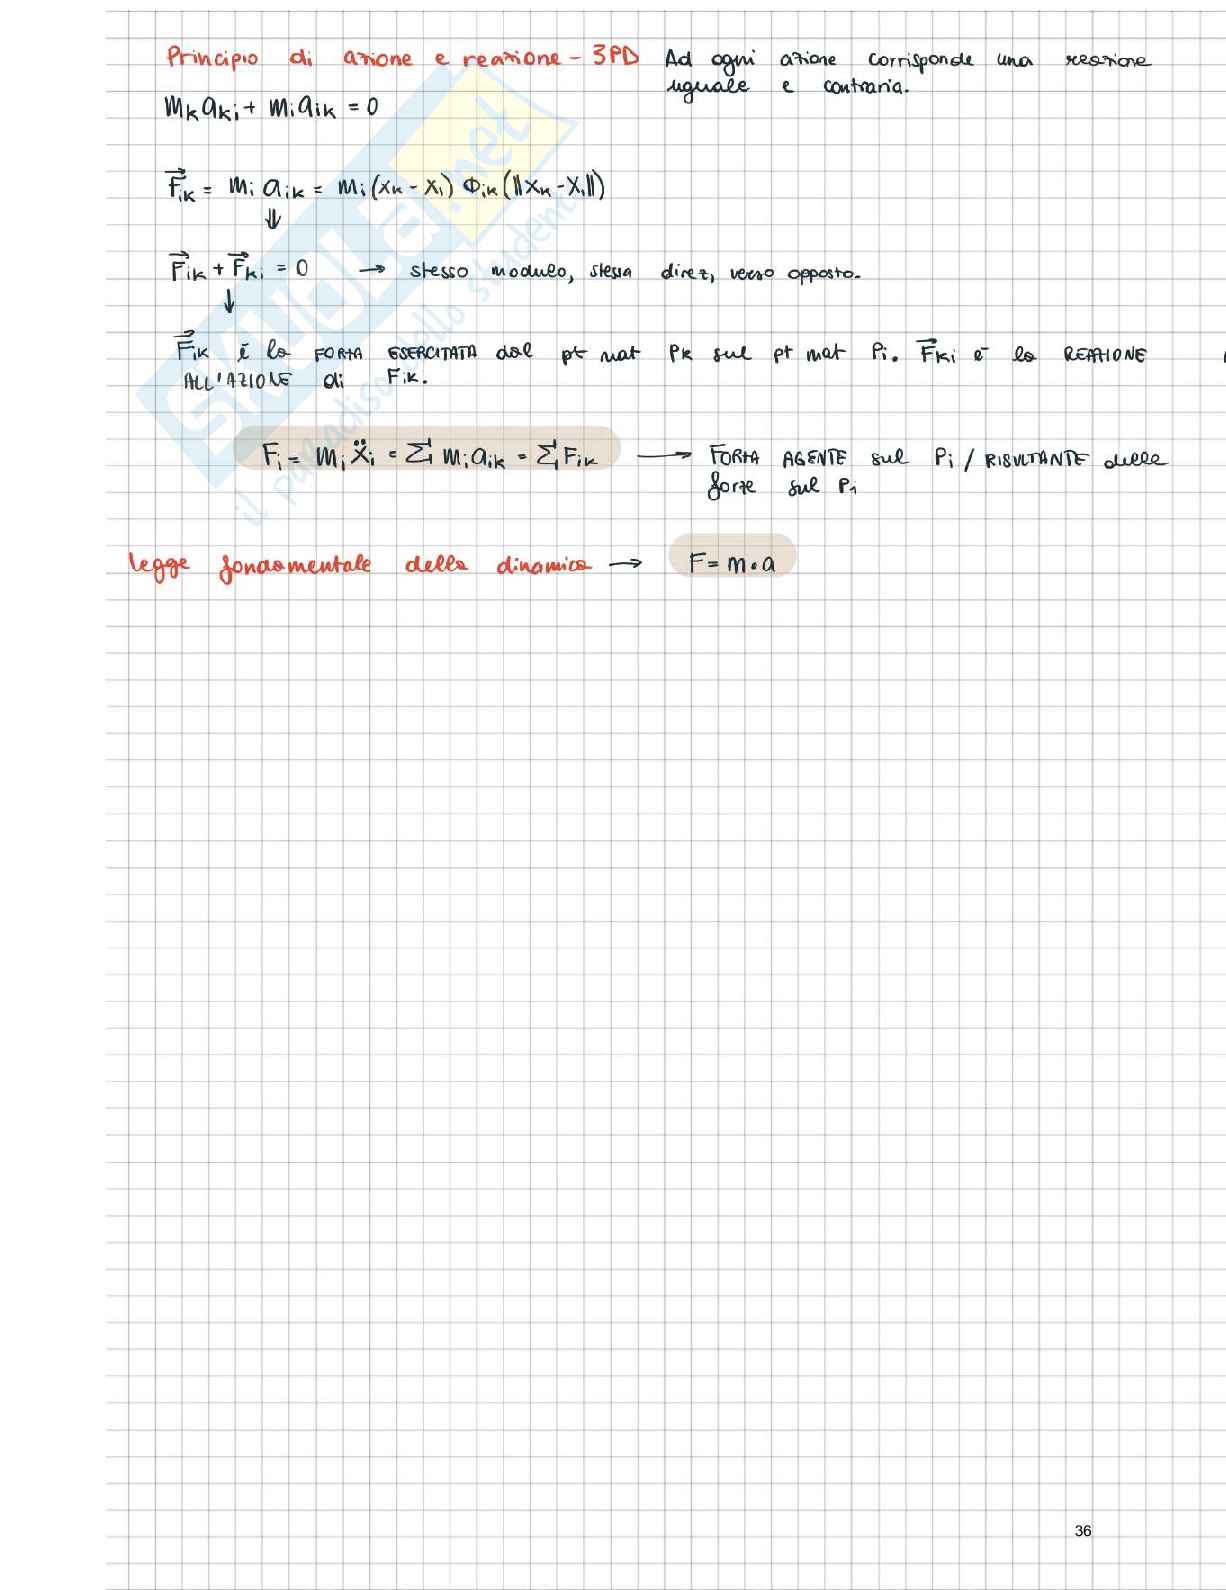 Principio di azione e reazione - 3PD Ad ogni azione corrisponde una reazione
uguale e contraria.
mₖaₖᵢ + mᵢaᵢₖ = 0
F⃗ᵢₖ = mᵢ aᵢₖ = mᵢ(xₖ - xᵢ) Φᵢₖ(‖xₖ - xᵢ‖)
⇓
F⃗ᵢₖ + F⃗ₖᵢ = 0 → stesso modulo, stessa direz, verso opposto.
↓
F⃗ᵢₖ è la FORZA ESERCITATA dal pt mat Pₖ sul pt mat Pᵢ. F⃗ₖᵢ è la REAZIONE
ALL'AZIONE di Fᵢₖ.
Fᵢ = mᵢẍᵢ = Σ mᵢaᵢₖ = Σ Fᵢₖ → FORZA AGENTE sul Pᵢ / RISULTANTE delle
forze sul Pᵢ
legge fondamentale della dinamica → F = m•a
SKUOLA.net
il paradiso dello studente
36